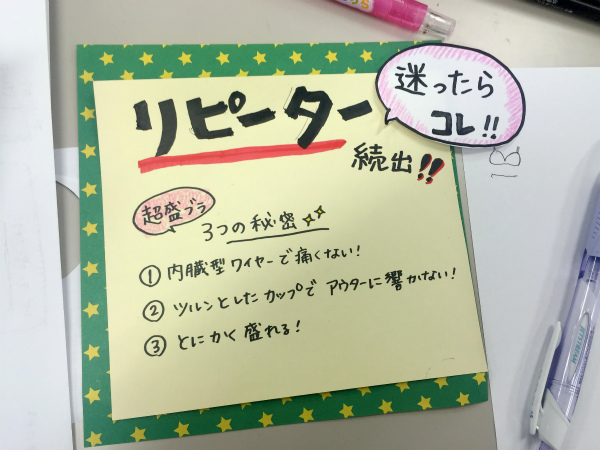 リピーター
続出!!
迷ったら
コレ!!
超盛ブラ
3つの秘密
① 内臓型ワイヤーで痛くない!
② ツルンとしたカップでアウターに響かない!
③ とにかく盛れる!
JETSTREAM